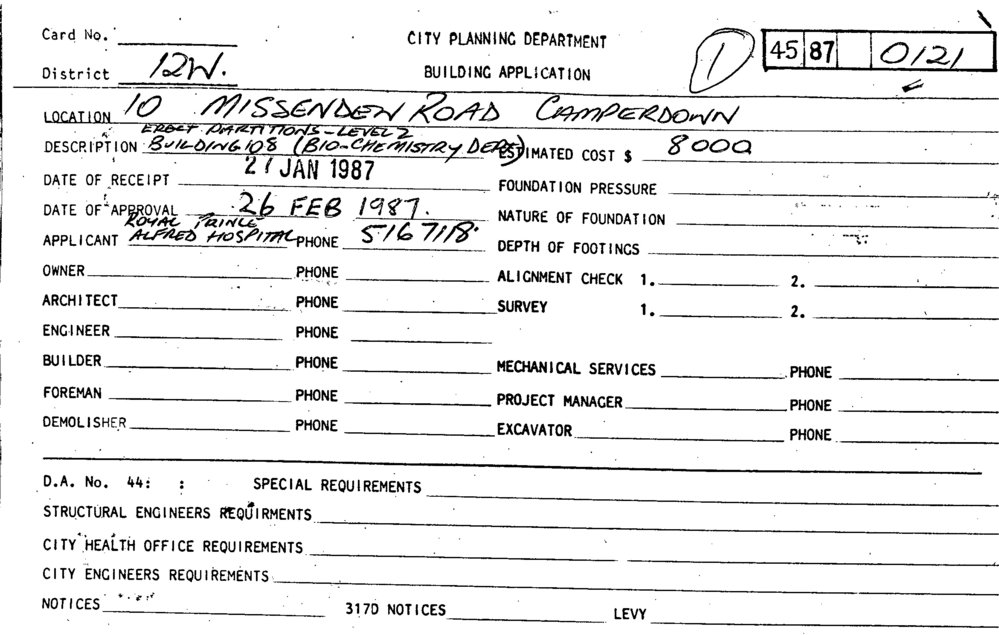 Card No. CITY PLANNING DEPARTMENT 1 45 87 0121
District 12W. BUILDING APPLICATION
LOCATION 10 MISSENDEN ROAD CAMPERDOWN
ERECT PARTITIONS - LEVEL 2
DESCRIPTION BUILDING 108 (BIO-CHEMISTRY DEPT) ESTIMATED COST $ 8000
DATE OF RECEIPT 21 JAN 1987 FOUNDATION PRESSURE
DATE OF APPROVAL 26 FEB 1987. NATURE OF FOUNDATION
ROYAL PRINCE
APPLICANT ALFRED HOSPITAL PHONE 516 7118 DEPTH OF FOOTINGS
OWNER PHONE ALIGNMENT CHECK 1. 2.
ARCHITECT PHONE SURVEY 1. 2.
ENGINEER PHONE
BUILDER PHONE MECHANICAL SERVICES PHONE
FOREMAN PHONE PROJECT MANAGER PHONE
DEMOLISHER PHONE EXCAVATOR PHONE
D.A. No. 44: : SPECIAL REQUIREMENTS
STRUCTURAL ENGINEERS REQUIRMENTS
CITY HEALTH OFFICE REQUIREMENTS
CITY ENGINEERS REQUIREMENTS
NOTICES 317D NOTICES LEVY